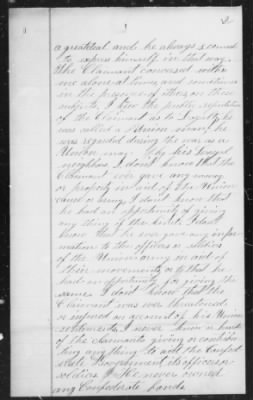 2
a great deal and he always seemed
to express himself in that way.
The Claimant conversed with
me alone at times and sometimes
in the presence of others on these
subjects. I knew the public reputation
of the Claimant as to Loyalty he
was called a Union man, he
was regarded during the war as a
Union man by his loyal
neighbors. I don't know that the
Claimant ever gave any money
or property in aid of the Union
cause or army. I don't know that
he had an opportunity of giving
any thing of the kind. I don't
know that he ever gave any infor-
mation to the officers or soldiers
of the Union army in aid of
their movements or that he
had an opportunity for giving the
same. I don't know that the
Claimant was ever threatened
or injured on account of his Union
sentiments. I never knew or heard
of the claimants giving or contribu-
ting any thing to aid the Confed-
erate Government its officers or
soldiers. He never owned
any Confederate bonds.